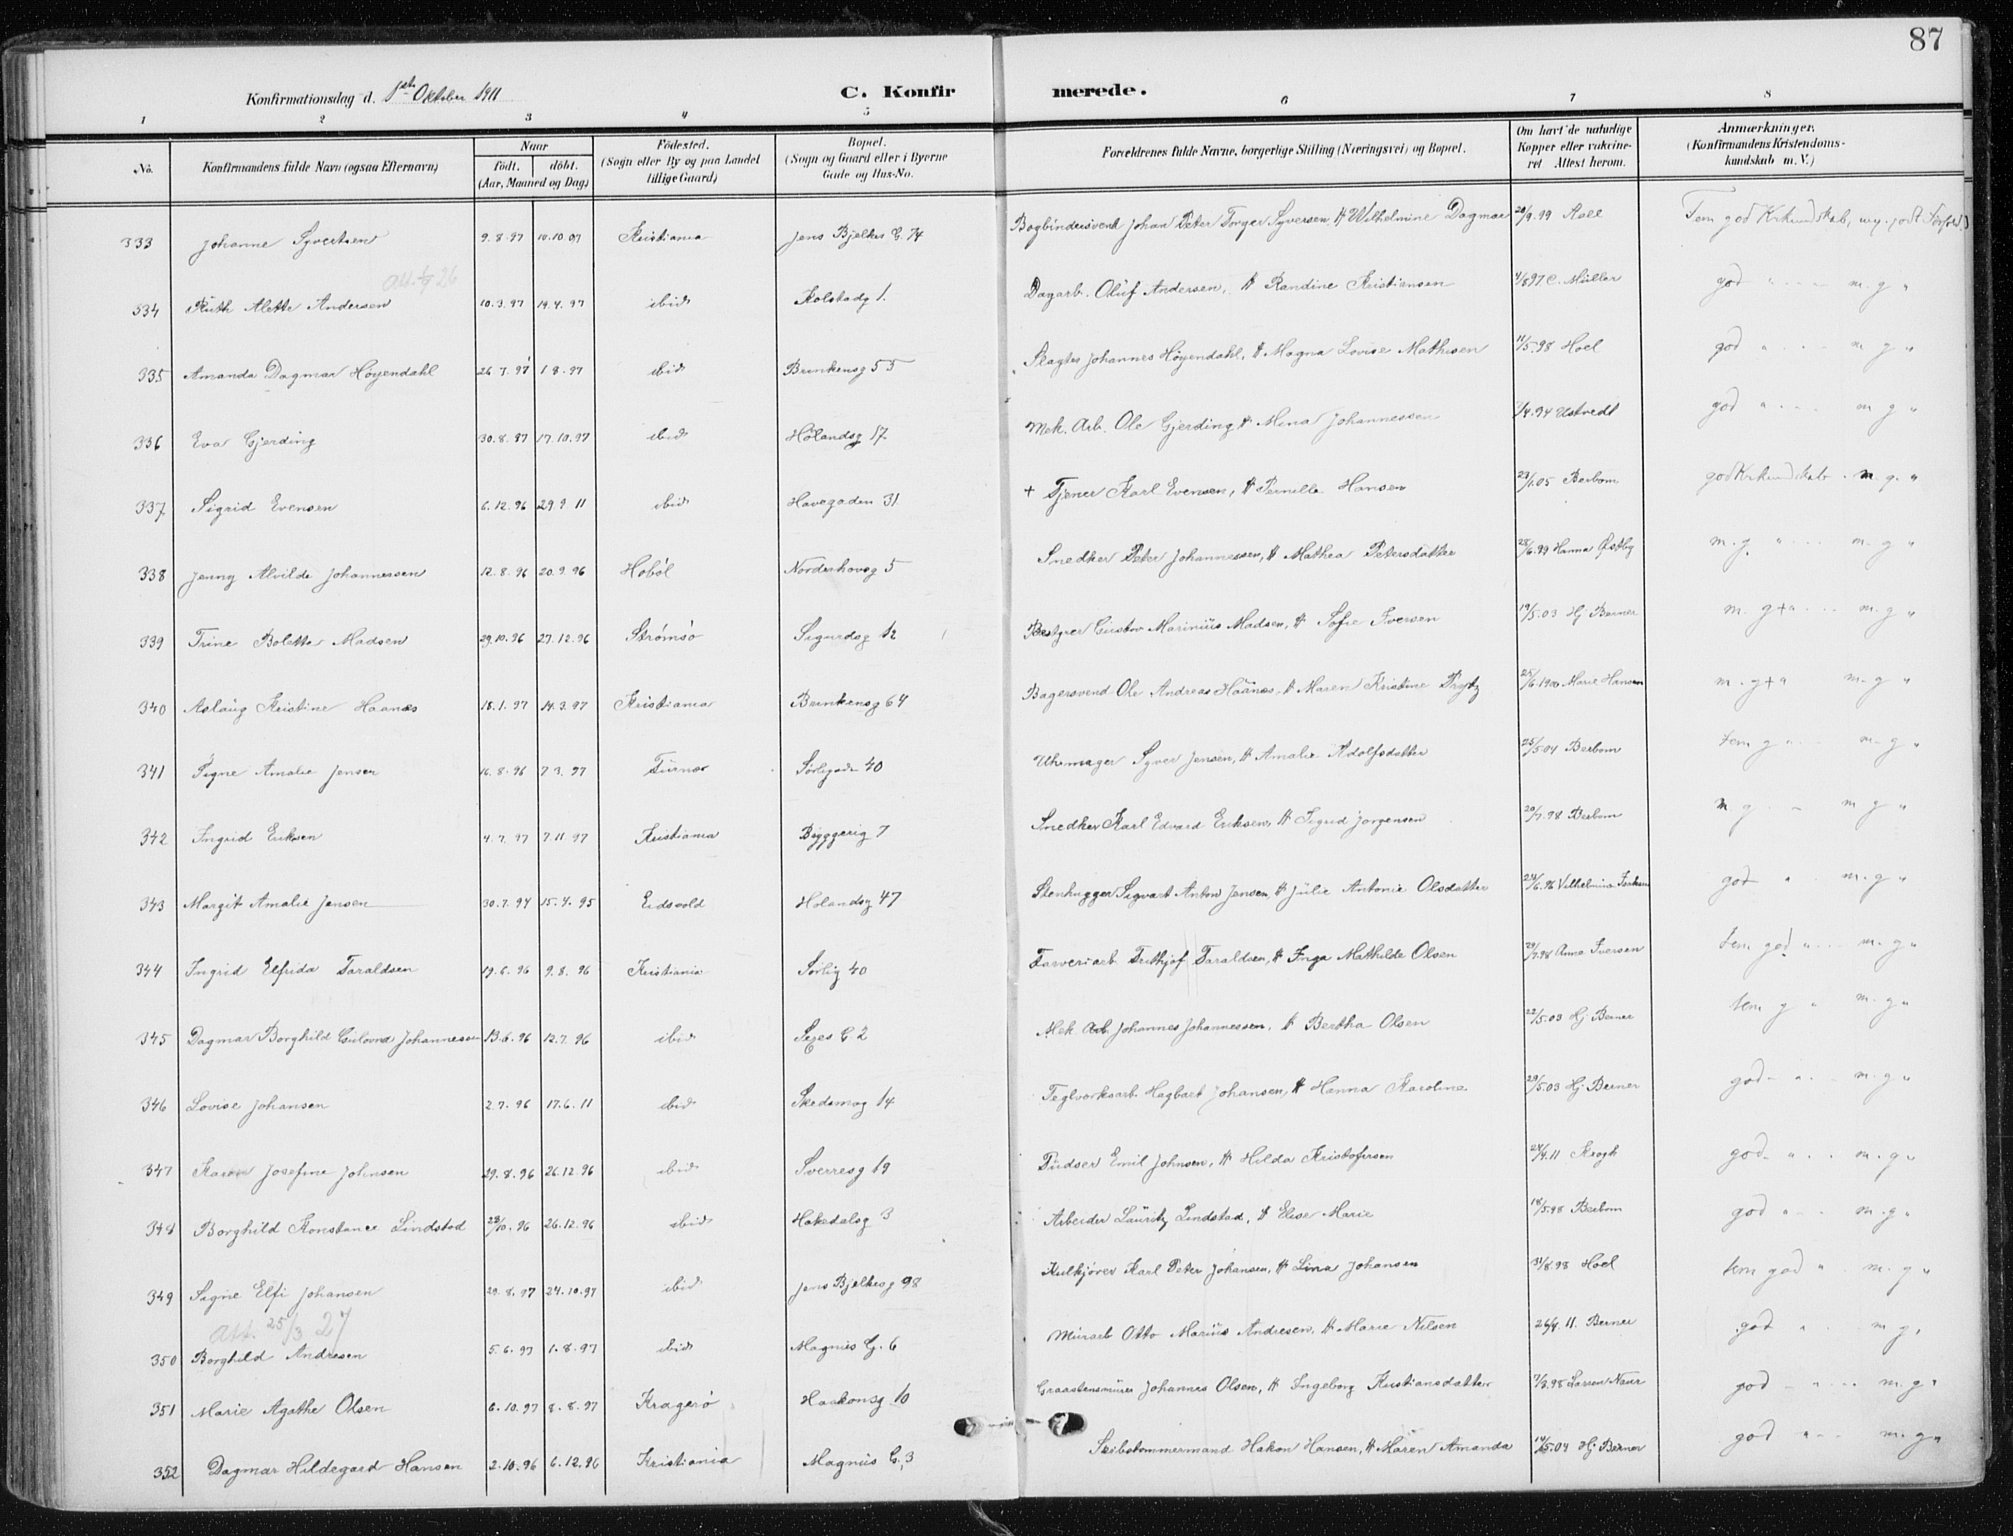 87
Konfirmationsdag d. 1ste Oktober 1911 C. Konfirmerede.
1 2 3 4 5 6 7 8
No. Konfirmandens fulde Navn (ogsaa Efternavn) Naar födt. döbt. (Aar, Maaned og Dag) Födested. (Sogn eller By og paa Landet tillige Gaard) Bopæl. (Sogn og Gaard eller i Byerne Gade og Hus-No. Forældrenes fulde Navne, borgerlige Stilling (Næringsvei) og Bopæl. Om havt de naturlige Kopper eller vakcineret Attest herom. Anmærkninger. (Konfirmandens Kristendomskundskab m. V.)
333 Johanne Syvertsen 9.8.97 10.10.09 Kristiania Jens Bjelkes G. 74 Bogbindersvend Johan Peter Torger Syversen, H Wilhelmine Dagmar 20/9.99 Aall Tem god Krkundskab, meg. godt Forhold
Att. 4/7 26
334 Ruth Alette Andersen 10.3.97 19.4.97 ibid Kolstadg 1. Dagarb. Oluf Andersen, H Randine Kristiansen 4/8 97 C. Müller god " m. g "
335 Amanda Dagmar Höyendahl 26.7.97 1 8.97 ibid Brinkensg 55 Slagter Johannes Höyendahl, H Magna Lovise Mathisen 11/5.98 Hoel god " m g "
336 Eva Gjerding 30.8.97 17.10.97 ibid Hölandsg 17. Mek. Arb. Ole Gjerding H Mina Johannessen 7/4.94 Ustvedt god " m g "
337 Sigrid Evensen 6.12.96 29.9 11 ibid Havegaden 31 + Tjener Karl Evensen, H Pernille Hansen 23/1.05 Berbom god Krkundskab. m. g. "
338 Jenny Alvilde Johannessen 12.8.96 20.9.96 Höböl Norderhovsg 5 Snedker Peter Johannessen, H Mathea Petersdatter 28/6.99 Hanna Östby m. g " m. g "
339 Trine Bolette Madsen 29.10.96 27.12.96 Strömsö Sigurdsg 12 Bestyrer Gustav Marinius Madsen, H Sofie Iversen 19/5.03 Hj Berner m. g + " m. g "
340 Aslaug Kristine Haanæs 18.1.97 14.3.97 Kristiania Brinkensg 64 Bagersvend Ole Andreas Haanæs, H Maren Kristine Prytz 25/6.1900 Marie Hansen m. g + " m. g "
341 Signe Amalie Jensen 16.8.96 7 3.97 Furnes Sörligade 40 Uhrmager Syver Jensen, H Amalie Adolfsdatter 25/5.04 Berbom tem g " m. g "
342 Ingrid Eriksen 4.7.97 7.11.97 Kristiania Byggerig 7 Snedker Karl Edvard Eriksen, H Sigrid Jorgensen 20/7.98 Berbom m g. m g "
343 Margit Amalie Jensen 30.7.94 15.4.95 Eidsvold Hölandsg 47 Stenhugger Sigvart Anton Jensen, H Julie Antonie Olsdatter 24/6.96 Vilhelmine god " m. g "
344 Ingrid Elfrida Taraldsen 19.6.96 9.8.96 Kristiania Sörlig 40 Farveriarb. Frithjof Taraldsen, H Inga Mathilde Olsen 29/7.98 Anna Iversen tem god " m. g "
345 Dagmar Borghild Gulovna Johannesen 13.6.96 12.7.96 ibid Sexes G 2 Mek Arb. Johannes Johannessen, H Bertha Olsen 22/5.03 Hj Berner tem g " m. g "
346 Lovise Johansen 2.7.96 17.6.11 ibid Skedsmog 14 Teglverksarb. Hagbart Johansen, H Hanna Karoline 29/5.03 Hj Berner god " m. g "
347 Karen Josefine Johnsen 29.8.96 26.12.96 ibid Sverresg 19 Pudser Emil Johnsen, H Hilda Kristofersen 24/4.11 Krogh god " m. g "
348 Borghild Konstance Lindstad 28/10.96 26.12.96 ibid Hakadalsg 3 Arbeider Lauritz Lindstad, H Elise Marie 18/5.98 Berbom god " m. g "
349 Signe Elfi Johansen 29.8.97 24.10.97 ibid Jens Bjelkesg 98 Kulkjörer Karl Peter Johansen, H Lina Johansen 31/8.98 Hoel tem god " m. g "
Att. 25/3 27
350 Borghild Andresen 5.6.97 1.8.97 ibid Magnus G. 6 Murarb Otto Marius Andresen, H Marie Nilsen 26/4 11. Berner god " m g.
351 Marie Agathe Olsen 6.10.97 8.8.97 Kragerö Haakonsg 10 Graastensmurer Johannes Olsen, H Ingeborg Kristiansdatter 7/8.98 Larsen Naur god " m. g "
352 Dagmar Hildegard Hansen 2.10.96 6.12.96 Kristiania Magnus G. 3 Skibstömmermand Hakon Hansen, H Maren Amanda 14/5.04 Hj Berner god " m. g "